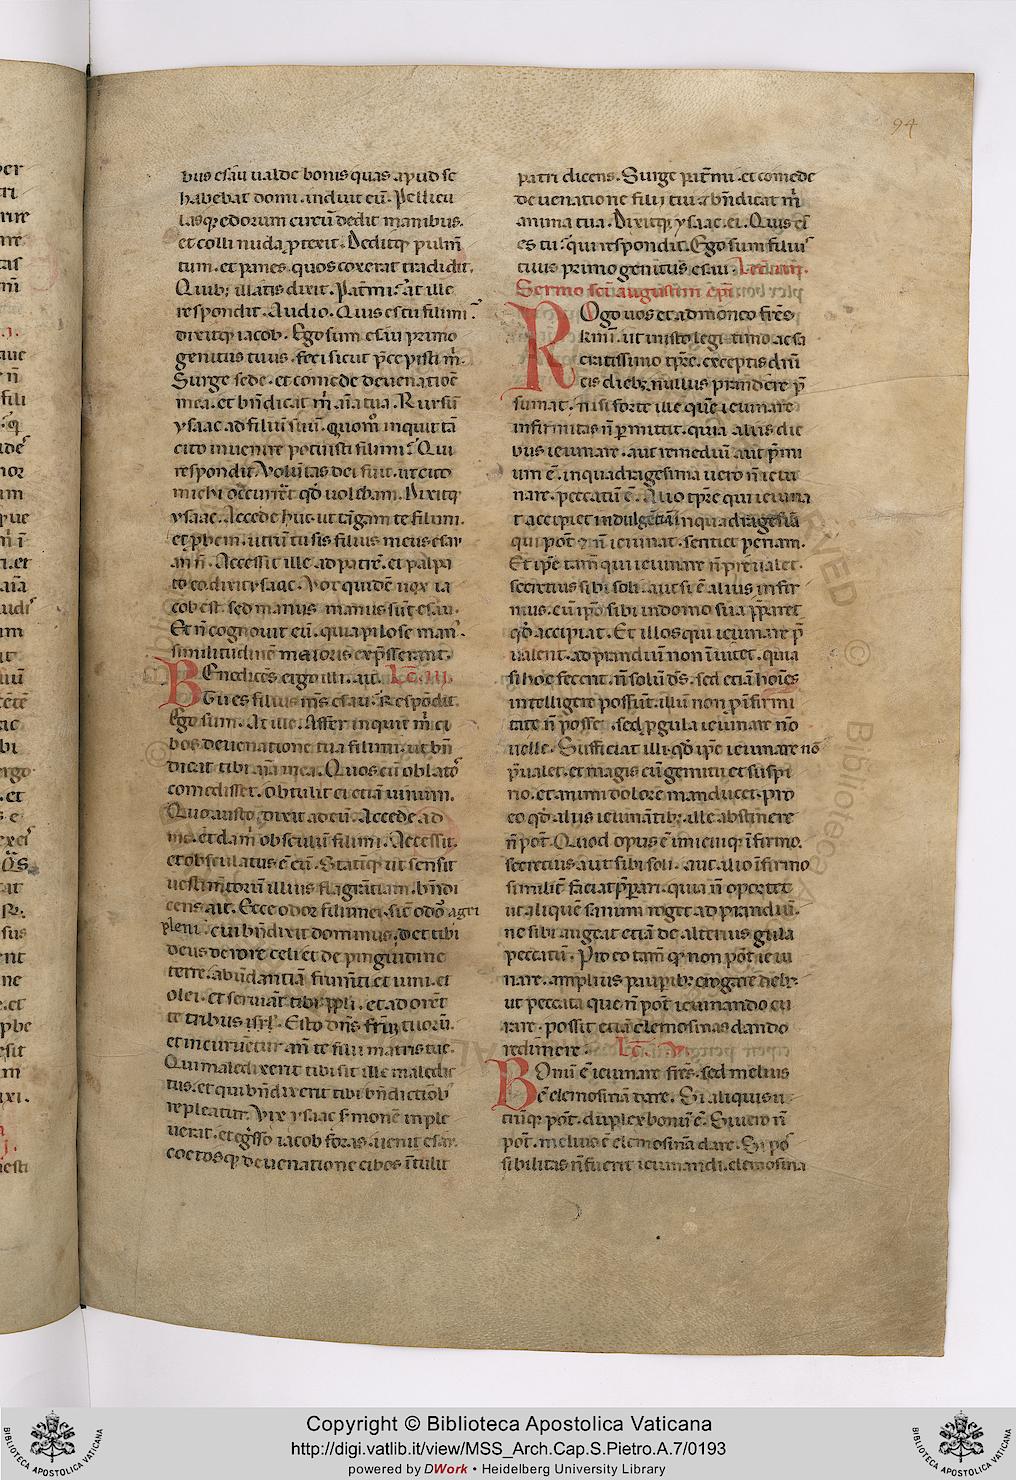 94
bus esau ualde bonis quas apud se
habebat domi . induit eū . Pellicu
lasq; edorum circū dedit manibus .
et colli nuda ꝓtexit . Deditq; pulm̄
tum . et panes . quos coxerat tradidit .
Quib; illatis dixit . Pat̄ mi . At ille
respondit . Audio . Quis es tu fili mi ?
dixitq; iacob . Ego sum esau primo
genitus tuus . feci sicut p̄cepisti m̄ .
Surge sede . et comede de uenatioē
mea . et bn̄dicat m̄ aīa tua . Rursū
ysaac ad filiū suū . quom̊ inquit tā
cito inuenire potuisti fili mi ? Qui
respondit . Volūtas dei fuit . ut cito
michi occurrēt qd̄ uolebam . Dixitq;
ysaac . Accede huc . ut tāgam te fili mi .
et ꝓbem . utrū tu sis filius meus esau
an n̄ . Accessit ille ad patrē . et palpa
to eo . dixit ysaac . Vox quidē uox ia
cob est . sed manus manus sūt esau .
Et n̄ cognouit eū . quia pilose man'
similitudinē maioris exp̄sserant .
Benedicēs ergo illi . ait . Lc̄ . iii .
Tu es filius m̄s esau . Respōdit .
Ego sum . At ille . Affer inquit m̄ ci
bos de uenatione tua fili mi . ut bn̄
dicat tibi aīa mea . Quos cū oblatos
comedisset . obtulit ei etiā uinum .
Quo austo . dixit ad eū . Accede ad
me . et da m̄ osculū fili mi . Accessit .
et osculatus ē eū . Statīq; ut sensit
uestim̄torū illius flagrātiam . bn̄di
cens ait . Ecce odor filii mei . sic̄ odor agri
pleni . cui bn̄dixit dominus . Det tibi
deus de rore celi et de pinguedine
terre . abūdantiā frum̄ti et uini . et
olei . et seruiāt tibi ppli . et adorēt
te tribus isrl . Esto dn̄s fr̄m tuorū .
et incuruētur an̄ te filii matris tue .
Qui maledixerit tibi sit ille maledic
tus . et qui bn̄dixerit tibi bn̄dictiōib'
repleatur . Vix ysaac s̄monē imple
uerat . et egr̄sso iacob foras . uenit esau .
coctosq; de uenatione cibos ītulit
patri dicens . Surge pat̄ mi . et comede
de uenatione filij tui . ut bn̄dicat m̄
anima tua . Dixitq; ysaac ei . Quis
es tu ? qui respondit . Ego sum filius
tuus primogenitus esau .
Sermo sc̄i augustini ep̄i
Rogo uos et admoneo fr̄es
kmi . ut in isto legitimo ac sa
cratissimo tp̄re . exceptis dnī
cis dieb; nullus prandere p̄
sumat . nisi forte ille quē ieiunare
infirmitas n̄ ꝑmittit . quia aliis die
bus ieiunare . aut remediū aut p̄mi
um ē . in quadragesima uero n̄ ieiu
nare . peccatū ē . Alio tp̄re qui ieiuna
t accipiet indulgētiā . in quadragesīa
qui pot̄ et n̄ ieiunat . sentiet penam .
Et ip̄e tam̄ qui ieiunare n̄ p̄ualet .
secretius sibi soli . aut si ē alius infir
mus . cū ip̄o sibi in domo sua p̄paret
qd̄ accipiat . Et illos qui ieiunare p̄
ualent . ad prandiū non īuitet . quia
si hoc fecerit . n̄ solū ds̄ . sed etiā hoīes
intelligere possūt . illū non ꝑ infirmi
tate n̄ posse . sed ꝑ gula ieiunare nō
uelle . Sufficiat illi qd̄ ip̄e ieiunare nō
p̄ualet . et magis cū gemitu et suspi
rio . et animi dolore manducet . pro
eo qd̄ aliis ieiunātib; ille abstinere
n̄ pot̄ . Quod opus ē unicuiq; īfirmo .
secretius aut sibi soli . aut alio īfirmo
similit̄ faciat p̄parari . quia n̄ oportet
ut aliquē sanum roget ad prandiū .
ne sibi augeat etiā de alterius gula
peccatū . Pro eo tam̄ qd̄ non pot̄ ieiu
nare . amplius pauꝑib; erogare deb;
ut peccata que n̄ pot̄ ieiunando cu
rare . possit etiā elemosinas dando
redimere . Lc̄ . v .
Bonū ē ieiunare fr̄es . sed melius
ē elemosinā dare . Si aliquis u
trūq; pot̄ . duplex bonū ē . Si uero n̄
pot̄ . melius ē elemosinā dare . Si pos
sibilitas n̄ fuerit ieiunandi . elemosina
Copyright © Biblioteca Apostolica Vaticana
http://digi.vatlib.it/view/MSS_Arch.Cap.S.Pietro.A.7/0193
powered by DWork • Heidelberg University Library
BIBLIOTECA APOSTOLICA VATICANA
BIBLIOTECA APOSTOLICA VATICANA